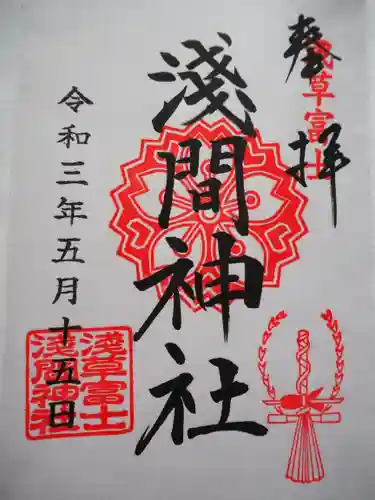 奉拝
浅草富士
淺間神社
令和三年五月十五日
淺草富士
淺間神社